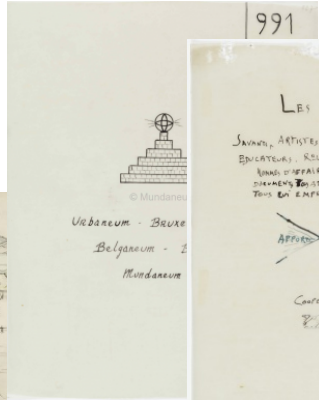 991
© Mundaneu
Urbaneum - Bruxe
Belganeum -
Mundaneum
LES
SAVANTS, ARTISTES
EDUCATEURS, REL
HOMMES D'AFFAIR
DOCUMENTS
TOUS QUI EMPL
APPORTS